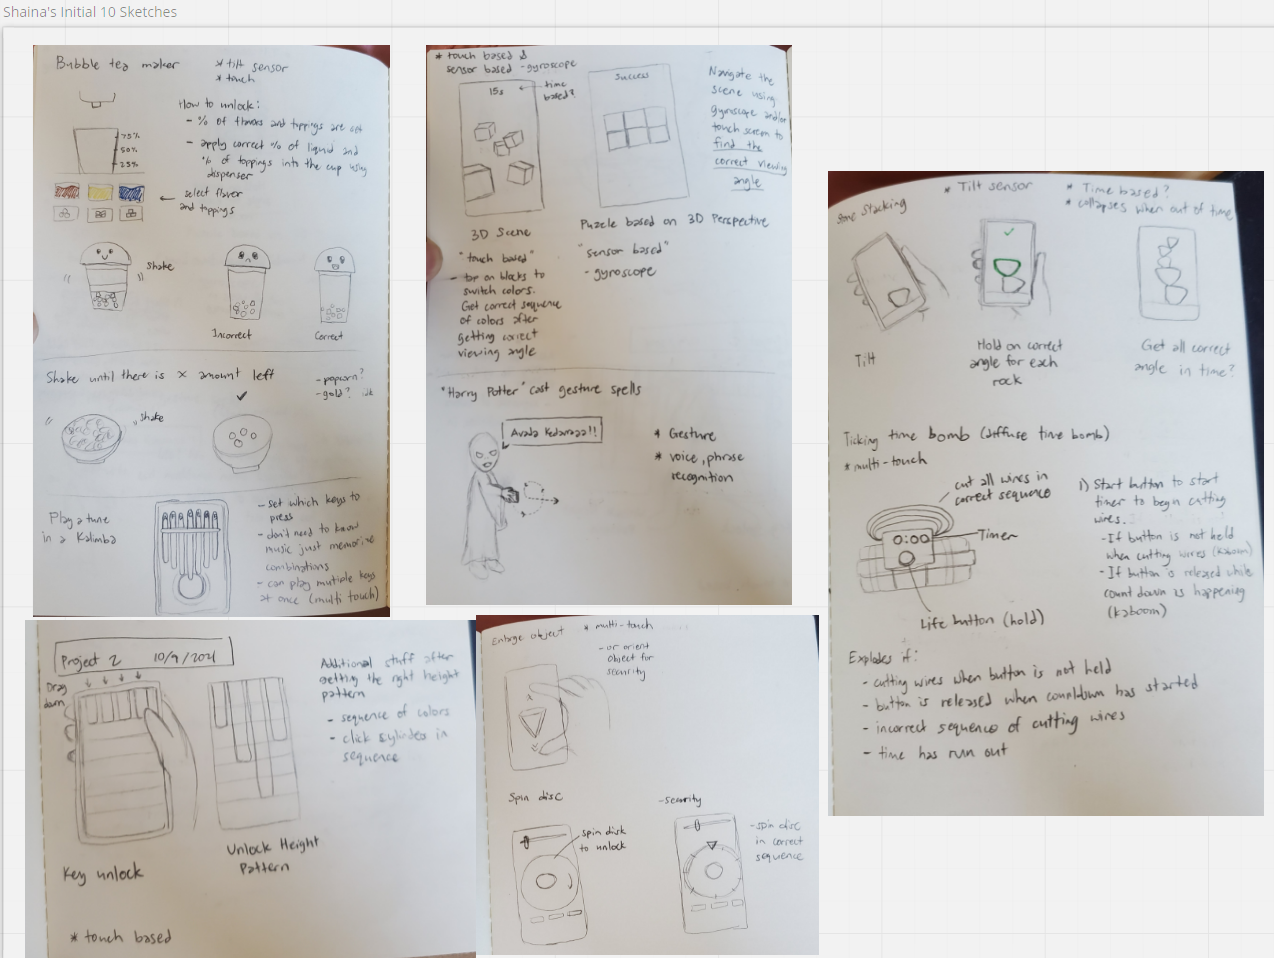 Shaina's Initial 10 Sketches
Bubble tea maker
* tilt sensor
* touch
How to unlock:
- % of flavors and toppings are set
- apply correct % of liquid and
% of toppings into the cup using
dispenser
75%
50%
25%
select flavor
and toppings
Shake
Incorrect
Correct
Shake until there is x amount left
- popcorn?
- gold? idk
Shake
Play a tune
in a Kalimba
- set which keys to
press
- don't need to know
music just memorize
combinations
- can play multiple keys
at once (multi touch)
* touch based &
sensor based - gyroscope
15s
time
based?
Success
Navigate the
scene using
gyroscope and/or
touch screen to
find the
correct viewing
angle
3D Scene
Puzzle based on 3D Perspective
"touch based"
- tap on blocks to
switch colors.
Get correct sequence
of colors after
getting correct
viewing angle
"sensor based"
- gyroscope
"Harry Potter" cast gesture spells
Avada Kedavraaa!!
* Gesture
* voice, phrase
recognition
Stone Stacking
* Tilt sensor
* Time based?
* collapses when out of time
Tilt
Hold on correct
angle for each
rock
Get all correct
angle in time?
Ticking time bomb (diffuse time bomb)
* multi-touch
cut all wires in
correct sequence
0:00
Timer
Life button (hold)
1) Start button to start
timer to begin cutting
wires.
- If button is not held
when cutting wires (kaboom)
- If button is released while
count down is happening
(kaboom)
Explodes if:
- cutting wires when button is not held
- button is released when countdown has started
- incorrect sequence of cutting wires
- time has run out
Project 2 10/9/2021
Drag
down
Additional stuff after
getting the right height
pattern
- sequence of colors
- click cylinder in
sequence
Key unlock
Unlock Height
Pattern
* touch based
Enlarge object
* multi-touch
- or orient
object for
security
Spin disc
spin disk
to unlock
- security
- spin disc
in correct
sequence